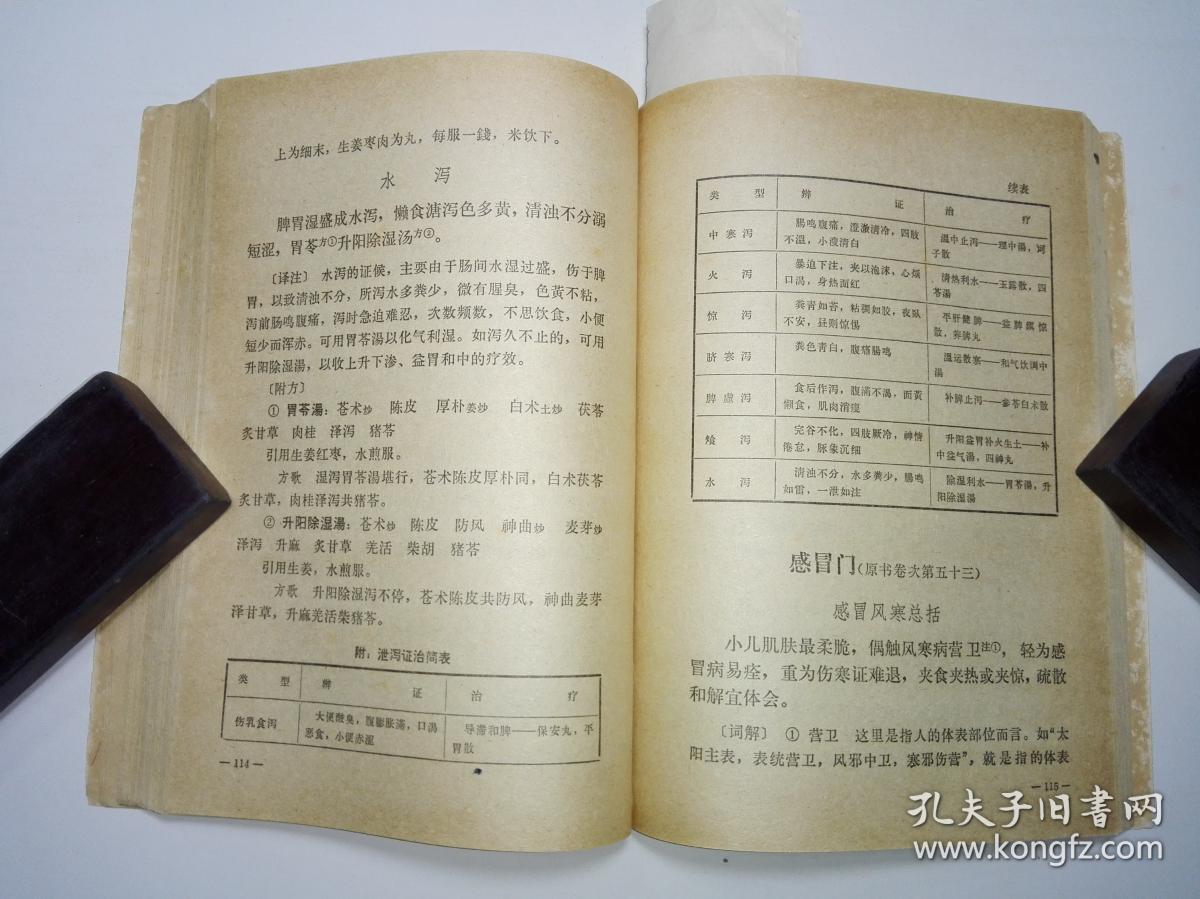 上为细末，生姜枣肉为丸，每服一錢，米饮下。
水 泻
脾胃湿盛成水泻，懒食溏泻色多黄，清浊不分溺
短涩，胃苓方①升阳除湿汤方②。
〔译注〕 水泻的证候，主要由于肠间水湿过盛，伤于脾
胃，以致清浊不分，所泻水多粪少，微有腥臭，色黄不粘，
泻前肠鸣腹痛，泻时急迫难忍，次数频数，不思饮食，小便
短少而浑赤。可用胃苓湯以化气利湿。如泻久不止的，可用
升阳除湿湯，以收上升下渗、益胃和中的疗效。
〔附方〕
① 胃苓湯：苍术炒 陈皮 厚朴姜炒 白术土炒 茯苓
炙甘草 肉桂 泽泻 猪苓
引用生姜红枣，水煎服。
方歌 湿泻胃苓湯堪行，苍术陈皮厚朴同，白术茯苓
炙甘草，肉桂泽泻共猪苓。
② 升阳除湿湯：苍术炒 陈皮 防风 神曲炒 麦芽炒
泽泻 升麻 炙甘草 羌活 柴胡 猪苓
引用生姜，水煎服。
方歌 升阳除湿泻不停，苍术陈皮共防风，神曲麦芽
泽甘草，升麻羌活柴猪苓。
附：泄泻证治简表
类 型 辨 证 治 疗
伤乳食泻 大便酸臭，腹膨胀滿，口渴
恶食，小便赤湿
导滞和脾——保安丸，平
胃散
—114—
续表
类 型 辨 证 治 疗
中寒泻 腸鸣腹痛，澄澈清冷，四肢
不溫，小溲清白
溫中止泻——理中湯，诃
子散
火 泻 暴迫下注，夹以泡沫，心烦
口渴，身热面红
清热利水——玉露散，四
苓湯
惊 泻 粪青如苔，粘稠如胶，夜臥
不安，昼则惊惕
平肝健脾——益脾鎮惊
散，养脾丸
脐寒泻 粪色青白，腹痛腸鸣
溫运散寒——和气饮，调中
湯
脾虛泻 食后作泻，腹滿不渴，面黃
懒食，肌肉消瘦
补脾止泻——参苓白术散
飧 泻 完谷不化，四肢厥冷，神情
倦怠，脉象沉细
升阳益胃补火生土——补
中益气湯，四神丸
水 泻 清浊不分，水多粪少，腸鸣
如雷，一泄如注
除湿利水——胃苓湯，升
阳除湿湯
感冒门（原书卷次第五十三）
感冒风寒总括
小儿肌肤最柔脆，偶触风寒病营卫注①，轻为感
冒病易痊，重为伤寒证难退，夹食夹热或夹惊，疏散
和解宜体会。
〔词解〕 ① 营卫 这里是指人的体表部位而言。如“太
阳主表，表统营卫，风邪中卫，寒邪伤营”，就是指的体表
—115—
孔夫子旧书网
www.kongfz.com